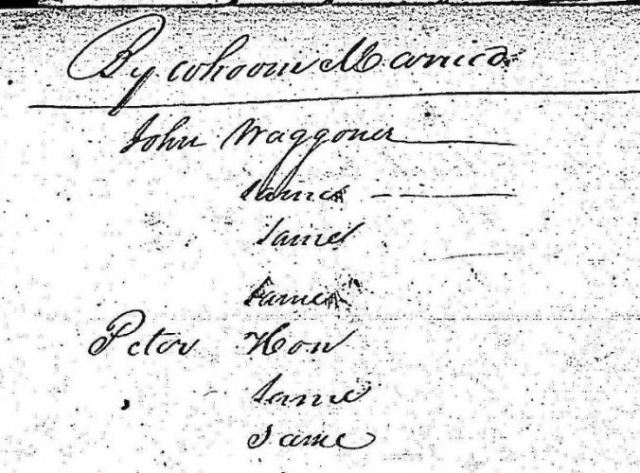 By whoom Married
John Waggoner
same
same
same
Peter Hon
same
same